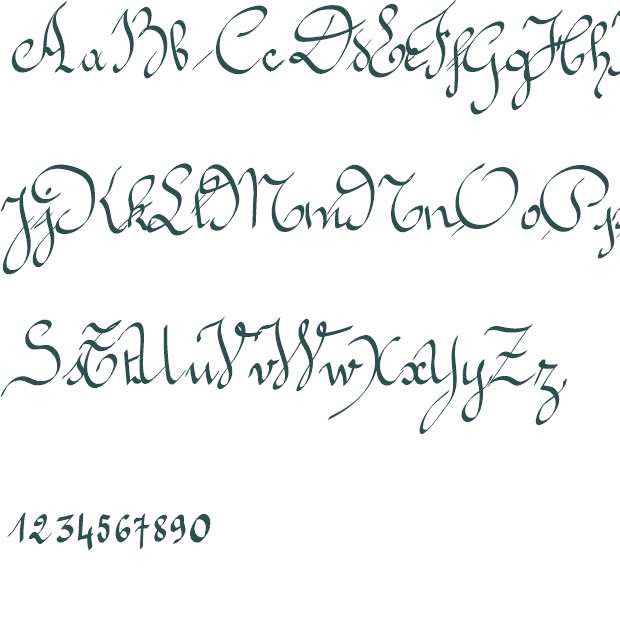 AaBbCcDdEeFfGgHhI
JjKkLlMmNnOoPp
SsTtUuVvWwXxYyZz
1234567890